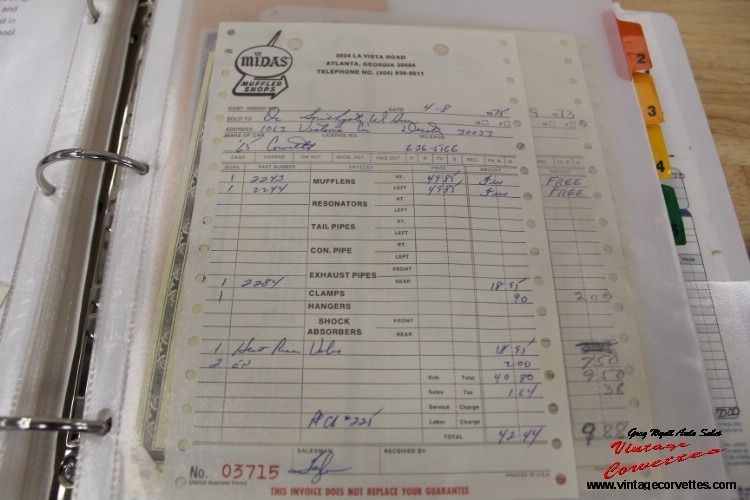 and
d in
ool
MIDAS
MUFFLER
SHOPS
2934 LA VISTA ROAD
ATLANTA, GEORGIA 30084
TELEPHONE NO. (404) 939-9011
CUST. ORDER NO. DATE 4-8 1975
SOLD TO Dr.
ADDRESS 1063 30033
MAKE OF CAR LICENSE NO. MILEAGE
'65 Corvette 636-5166
CASH CHARGE ON OUT MDSE. RET. PAID OUT
QUAN. PART NUMBER ARTICLES PRICE AMOUNT
1 2243 MUFFLERS RT. 49.85 Free
1 2244 LEFT 49.85 Free
RESONATORS RT.
LEFT
TAIL PIPES RT.
LEFT
CON. PIPE RT.
LEFT
EXHAUST PIPES FRONT
1 2284 REAR 18 95
1 CLAMPS 90
HANGERS
SHOCK ABSORBERS FRONT
REAR
1 Heat Riser Valve 18 95
2 2 00
Sub- Total 40 80
Sales Tax 1 64
Service Charge
Labor Charge
TOTAL 42.44
SALESMAN RECEIVED BY
No. 03715
PRINTED IN U.S.A.
THIS INVOICE DOES NOT REPLACE YOUR GUARANTEE
73
AMOUNT
FREE
FREE
200
750
950
38
988
2
3
4
5
Greg Wyatt Auto Sales
Vintage
Corvettes
www.vintagecorvettes.com